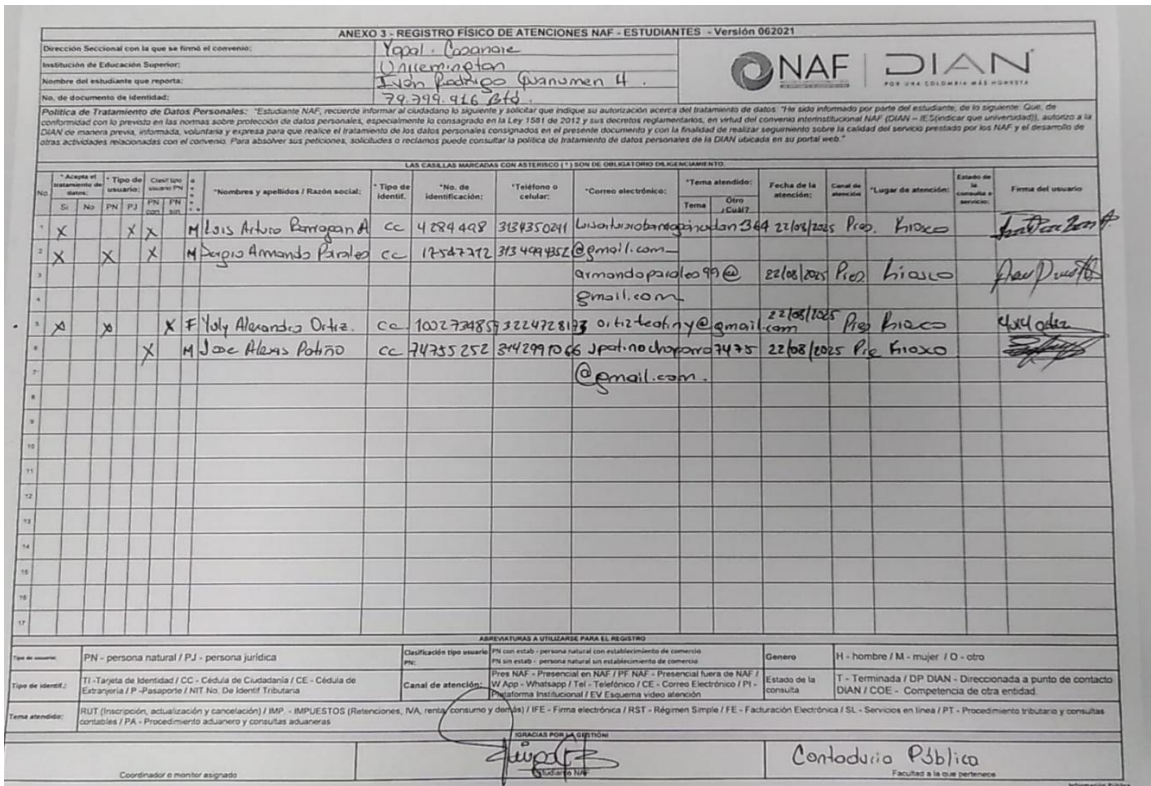 ANEXO 3 - REGISTRO FÍSICO DE ATENCIONES NAF - ESTUDIANTES - Versión 062021
Dirección Seccional con la que se firmó el convenio: Yopal - Casanare
Institución de Educación Superior: Uniremington
Nombre del estudiante que reporta: Iván Rodrigo Guanumen H.
No. de documento de identidad: 79.799.916 Btá.
NAF DIAN
POR UNA COLOMBIA MÁS HONESTA
Política de Tratamiento de Datos Personales: "Estudiante NAF, recuerde informar al ciudadano lo siguiente y solicitar que indique su autorización acerca del tratamiento de datos: "He sido informado por parte del estudiante, de lo siguiente: Que, de
conformidad con lo previsto en las normas sobre protección de datos personales, especialmente lo consagrado en la Ley 1581 de 2012 y sus decretos reglamentarios, en virtud del convenio interinstitucional NAF (DIAN – IES(indicar que universidad)), autorizo a la
DIAN de manera previa, informada, voluntaria y expresa para que realice el tratamiento de los datos personales consignados en el presente documento y con la finalidad de realizar seguimiento sobre la calidad del servicio prestado por los NAF y el desarrollo de
otras actividades relacionadas con el convenio. Para absolver sus peticiones, solicitudes o reclamos puede consultar la política de tratamiento de datos personales de la DIAN ubicada en su portal web."
LAS CASILLAS MARCADAS CON ASTERISCO (*) SON DE OBLIGATORIO DILIGENCIAMIENTO.
No. *Acepta el tratamiento de datos: Si No *Tipo de usuario: PN PJ Clasif tipo usuario PN PN con PN sin *Nombres y apellidos / Razón social: *Tipo de identif. *No. de identificación: *Teléfono o celular: *Correo electrónico: *Tema atendido: Tema Otro ¿Cuál? Fecha de la atención: Canal de atención *Lugar de atención: Estado de la consulta o servicio: Firma del usuario
1 X X X M Luis Arturo Barragan A cc 4284498 3134350241 22/08/2025 Pres. Kiosco
2 X X X M Sergio Armando Parales cc 17547712 313 4994352 @gmail.com
3 armandoparales99@ 22/08/2025 Pres Kiosco
4 gmail.com
5 X X X F Yuly Alexandra Ortiz. cc 3224728173 ortizteatiny@gmail.com 22/08/2025 Pres Kiosco
6 X M Jose Alexis Patiño cc 74755252 3142991066 jpatinochaparro7475 22/08/2025 Pre Kiosco
7 @gmail.com.
8
9
10
11
12
13
14
15
16
17
ABREVIATURAS A UTILIZARSE PARA EL REGISTRO
Tipo de usuario: PN - persona natural / PJ - persona jurídica
Clasificación tipo usuario PN: PN con estab - persona natural con establecimiento de comercio
PN sin estab - persona natural sin establecimiento de comercio
Genero H - hombre / M - mujer / O - otro
Tipo de identif.: TI -Tarjeta de Identidad / CC - Cédula de Ciudadanía / CE - Cédula de
Extranjería / P -Pasaporte / NIT No. De Identif Tributaria
Canal de atención: Pres NAF - Presencial en NAF / PF NAF- Presencial fuera de NAF /
W App - Whatsapp / Tel - Telefónico / CE - Correo Electrónico / PI -
Plataforma Institucional / EV Esquema video atención
Estado de la consulta T - Terminada / DP DIAN - Direccionada a punto de contacto
DIAN / COE - Competencia de otra entidad.
Tema atendido: RUT (Inscripción, actualización y cancelación) / IMP - IMPUESTOS (Retenciones, IVA, renta, consumo y demás) / IFE - Firma electrónica / RST - Régimen Simple / FE - Facturación Electrónica / SL - Servicios en línea / PT - Procedimiento tributario y consultas
contables / PA - Procedimiento aduanero y consultas aduaneras
¡GRACIAS POR LA GESTIÓN!
Coordinador o monitor asignado
Estudiante NAF
Contaduría Pública
Facultad a la que pertenece